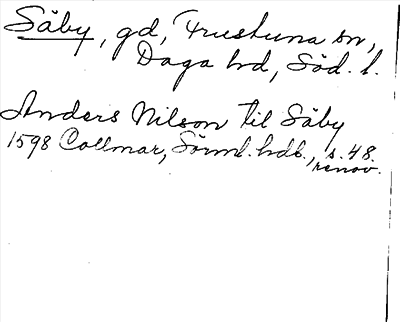 Säby, gd, Frustuna sn,
Daga hd, Söd. l.
Anders Nilson til Säby
1598 Collmar, Sörml. hdb., s. 48.
renov.